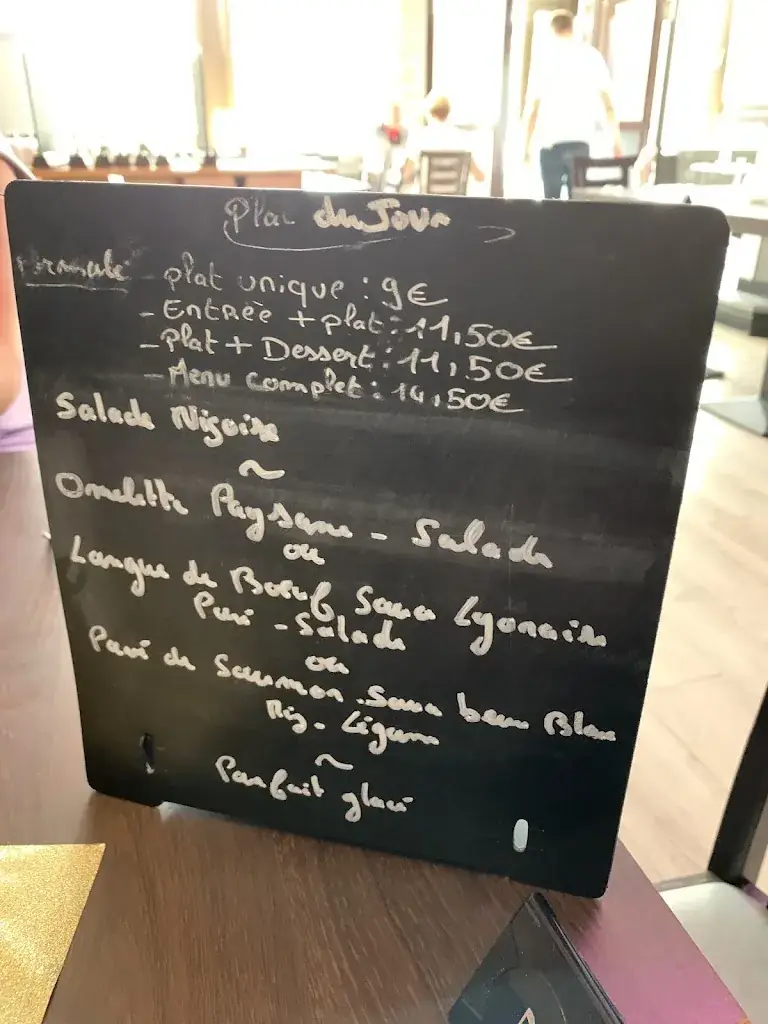 Plat du Jour
Formule - plat unique : 9€
- Entrée + plat : 11,50€
- Plat + Dessert : 11,50€
- Menu complet : 14,50€
Salade Niçoise
~
Omelette Paysanne - Salade
ou
Langue de Boeuf Sauce Lyonnaise
Purée - Salade
ou
Pavé de Saumon Sauce beurre Blanc
Riz - Légumes
~
Parfait glacé